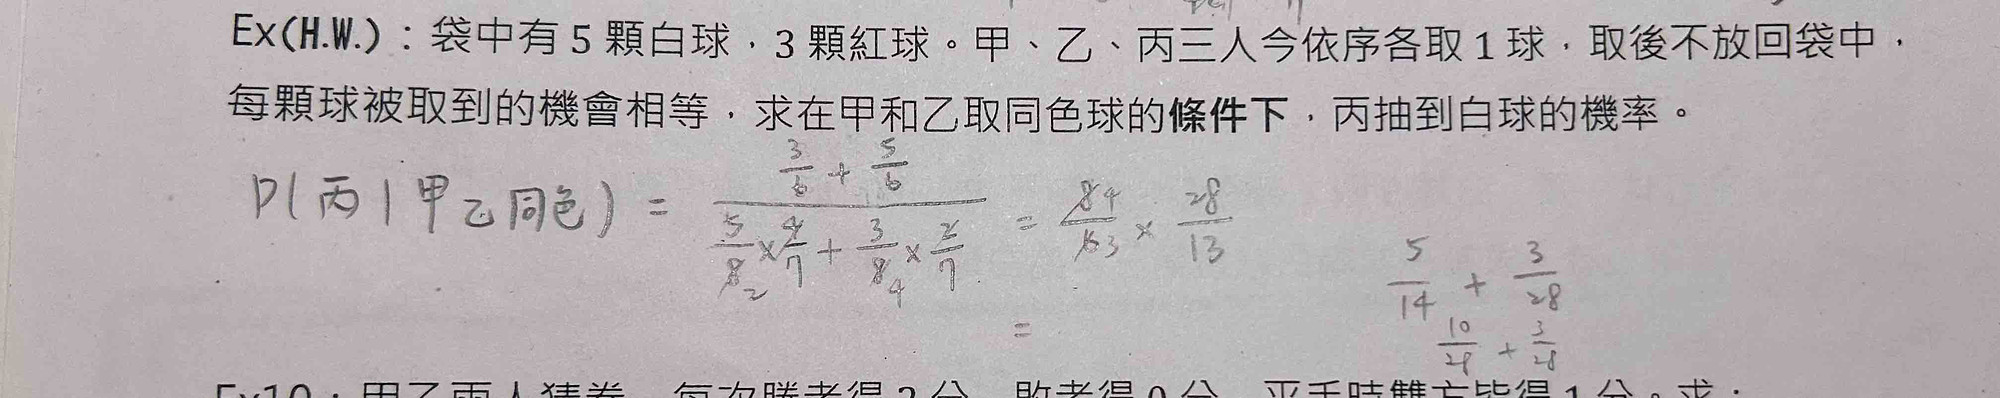 Ex(H.W.)：袋中有 5 顆白球，3 顆紅球。甲、乙、丙三人今依序各取 1 球，取後不放回袋中，
每顆球被取到的機會相等，求在甲和乙取同色球的條件下，丙抽到白球的機率。
P(丙|甲乙同色) = (3/6 + 5/6) / (5/8 × 4/7 + 3/8 × 2/7) = 84/63 × 28/13
2 4
=
5/14 + 3/28
10/28 + 3/28
Ex10：甲乙兩人猜拳，每次勝者得 2 分，敗者得 0 分，平手時雙方皆得 1 分。求：